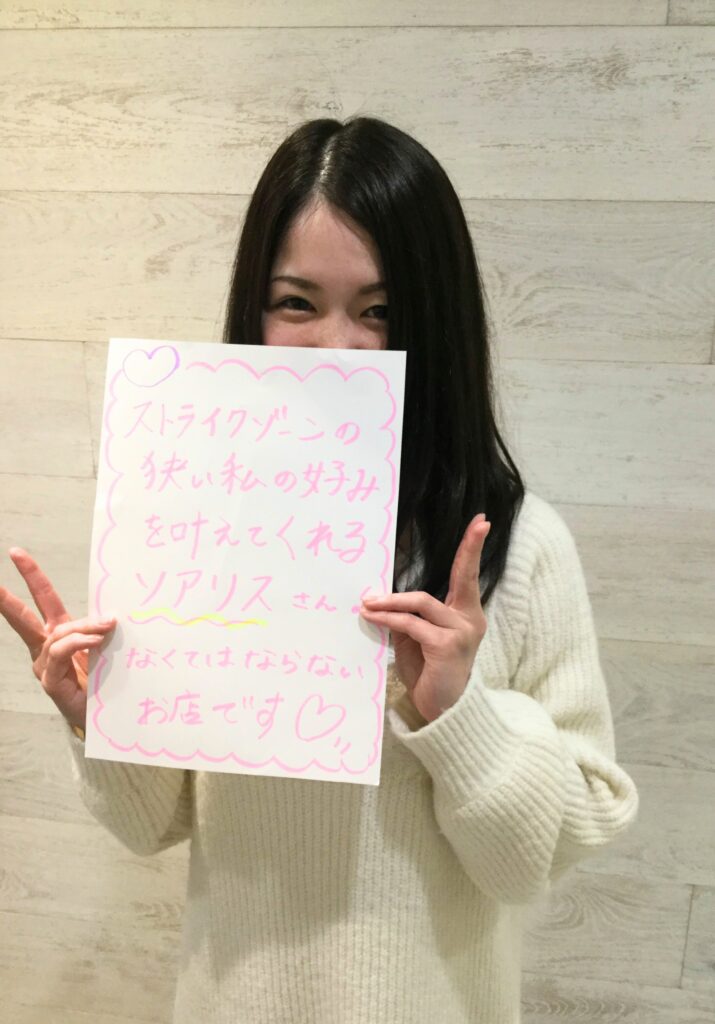 ストライクゾーンの
狭い私の好み
を叶えてくれる
ソアリスさん!
なくてはならない
お店です♡